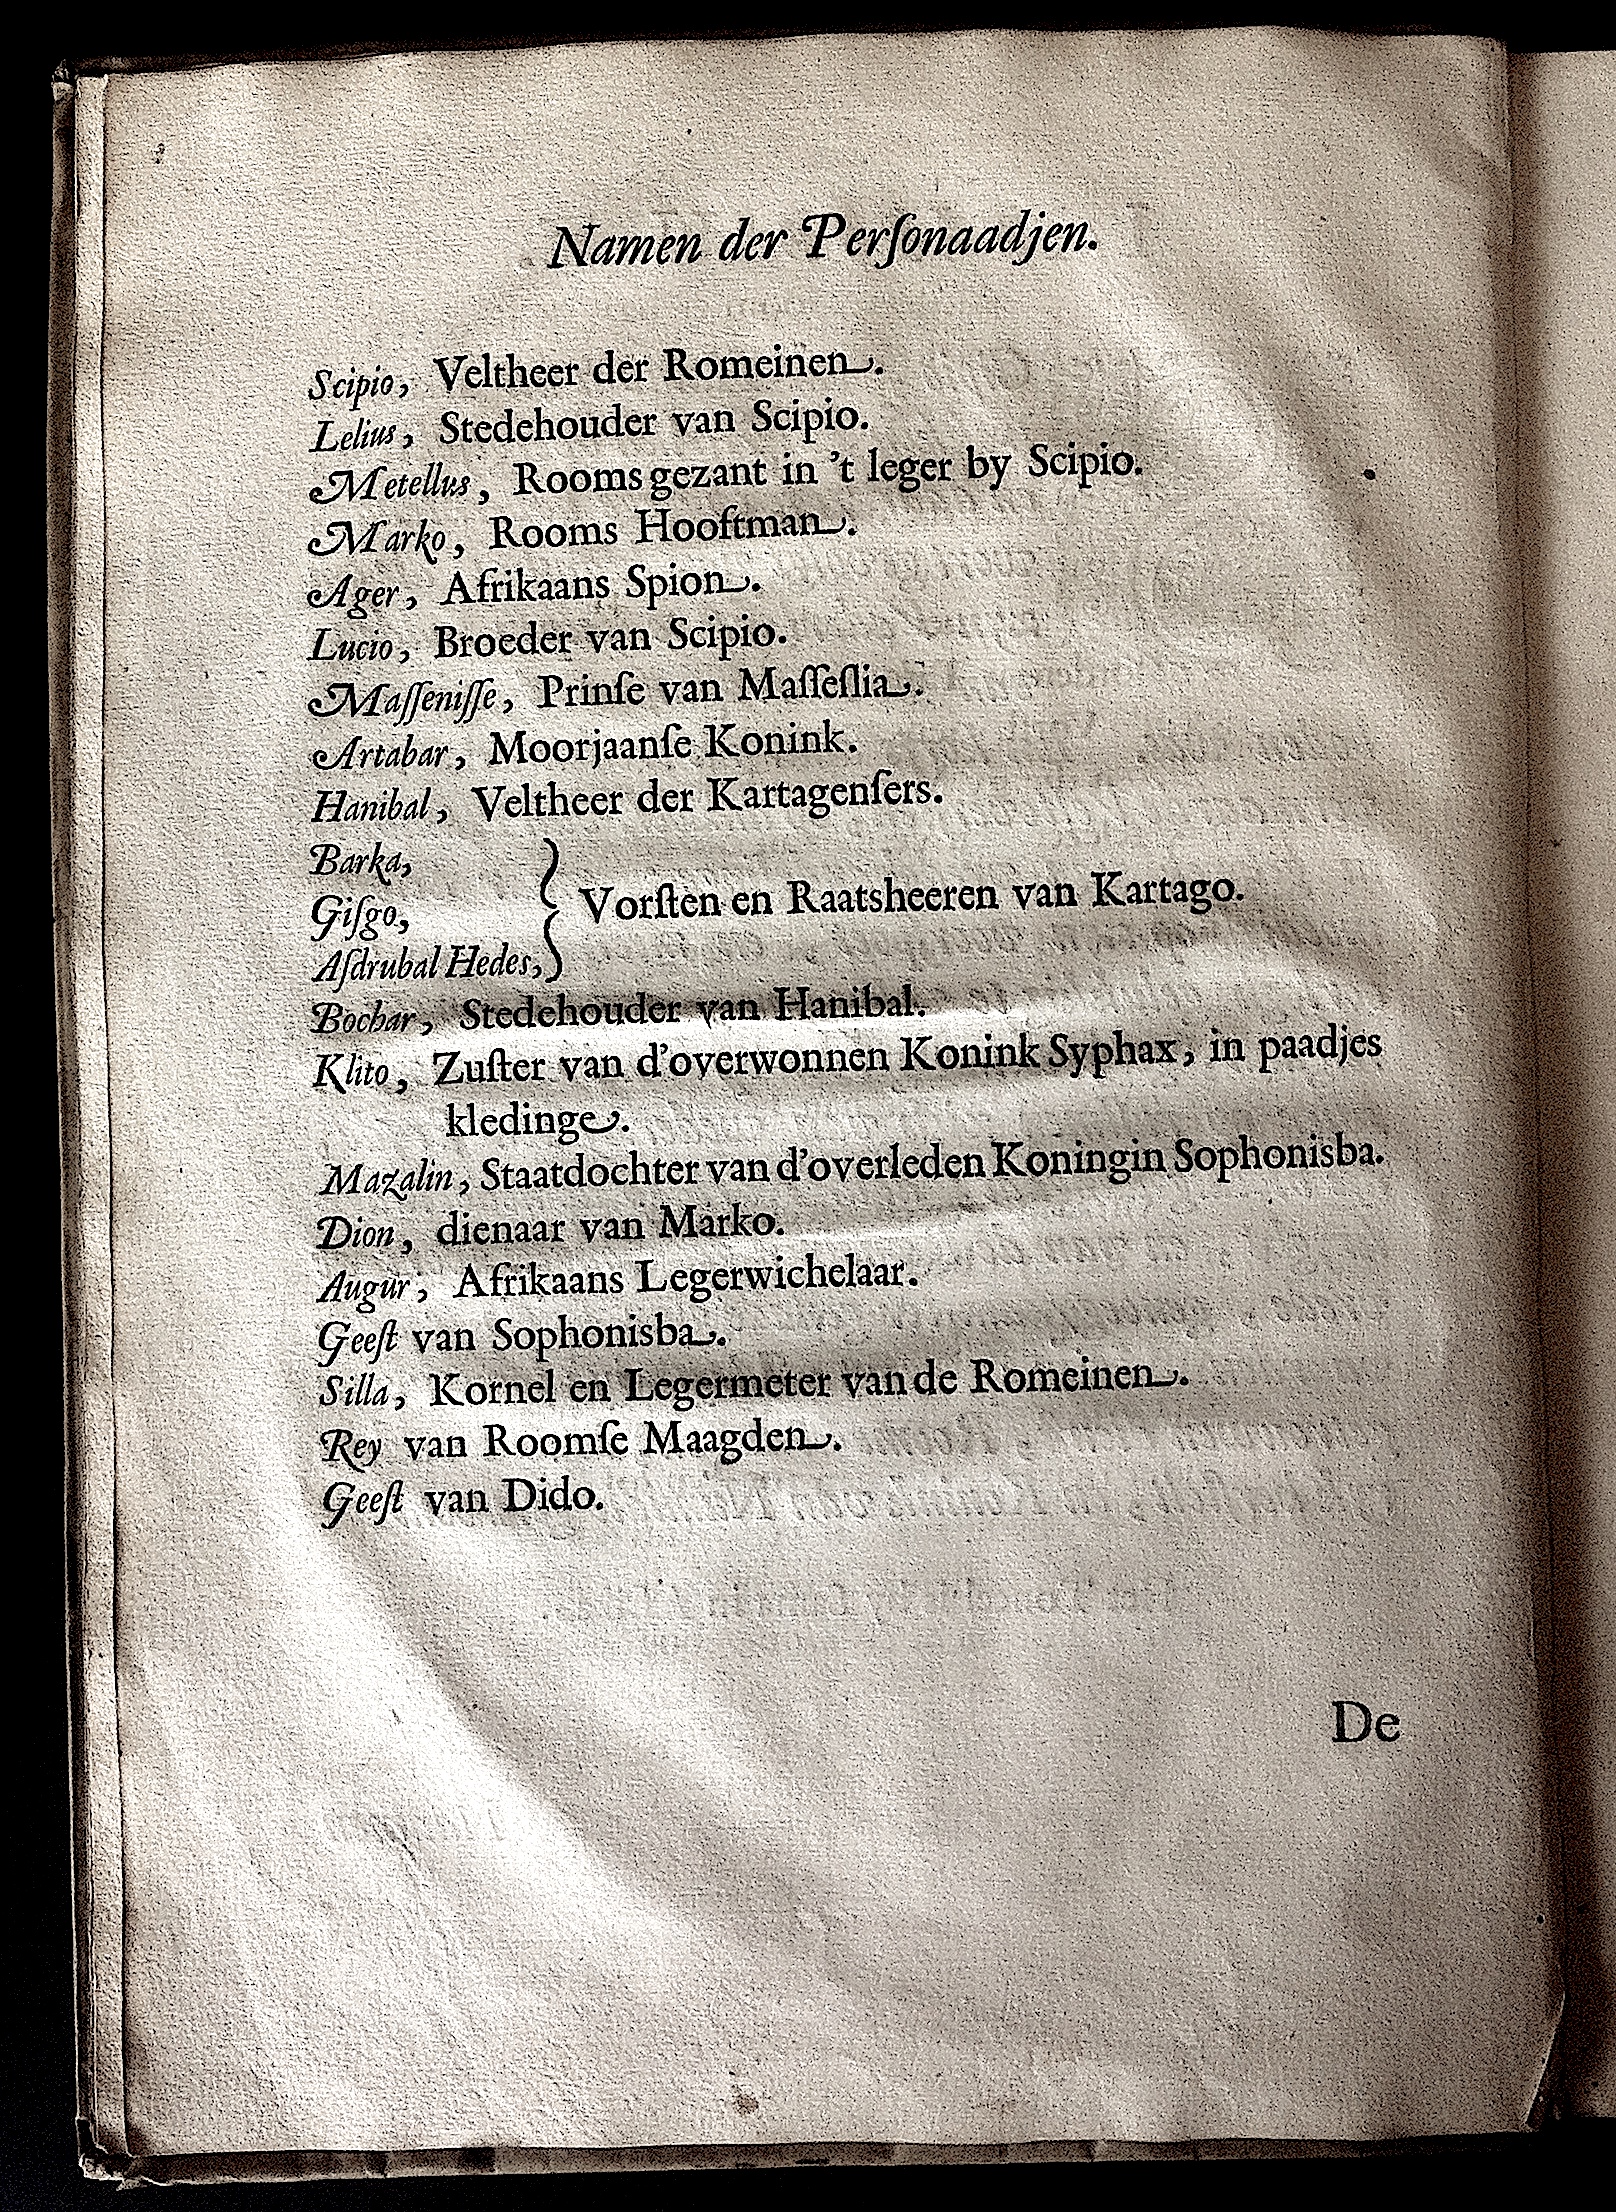 Namen der Perſonaadjen.
Scipio, Veltheer der Romeinen.
Lelius, Stedehouder van Scipio.
Metellus, Rooms gezant in 't leger by Scipio.
Marko, Rooms Hooftman.
Ager, Afrikaans Spion.
Lucio, Broeder van Scipio.
Maſſeniſſe, Prinſe van Maſſeſlia.
Artabar, Moorjaanſe Konink.
Hanibal, Veltheer der Kartagenſers.
Barka,
Giſgo, } Vorſten en Raatsheeren van Kartago.
Aſdrubal Hedes,
Bochar, Stedehouder van Hanibal.
Klito, Zuſter van d'overwonnen Konink Syphax, in paadjes
kledinge.
Mazalin, Staatdochter van d'overleden Koningin Sophonisba.
Dion, dienaar van Marko.
Augur, Afrikaans Legerwichelaar.
Geeſt van Sophonisba.
Silla, Kornel en Legermeter van de Romeinen.
Rey van Roomſe Maagden.
Geeſt van Dido.
De